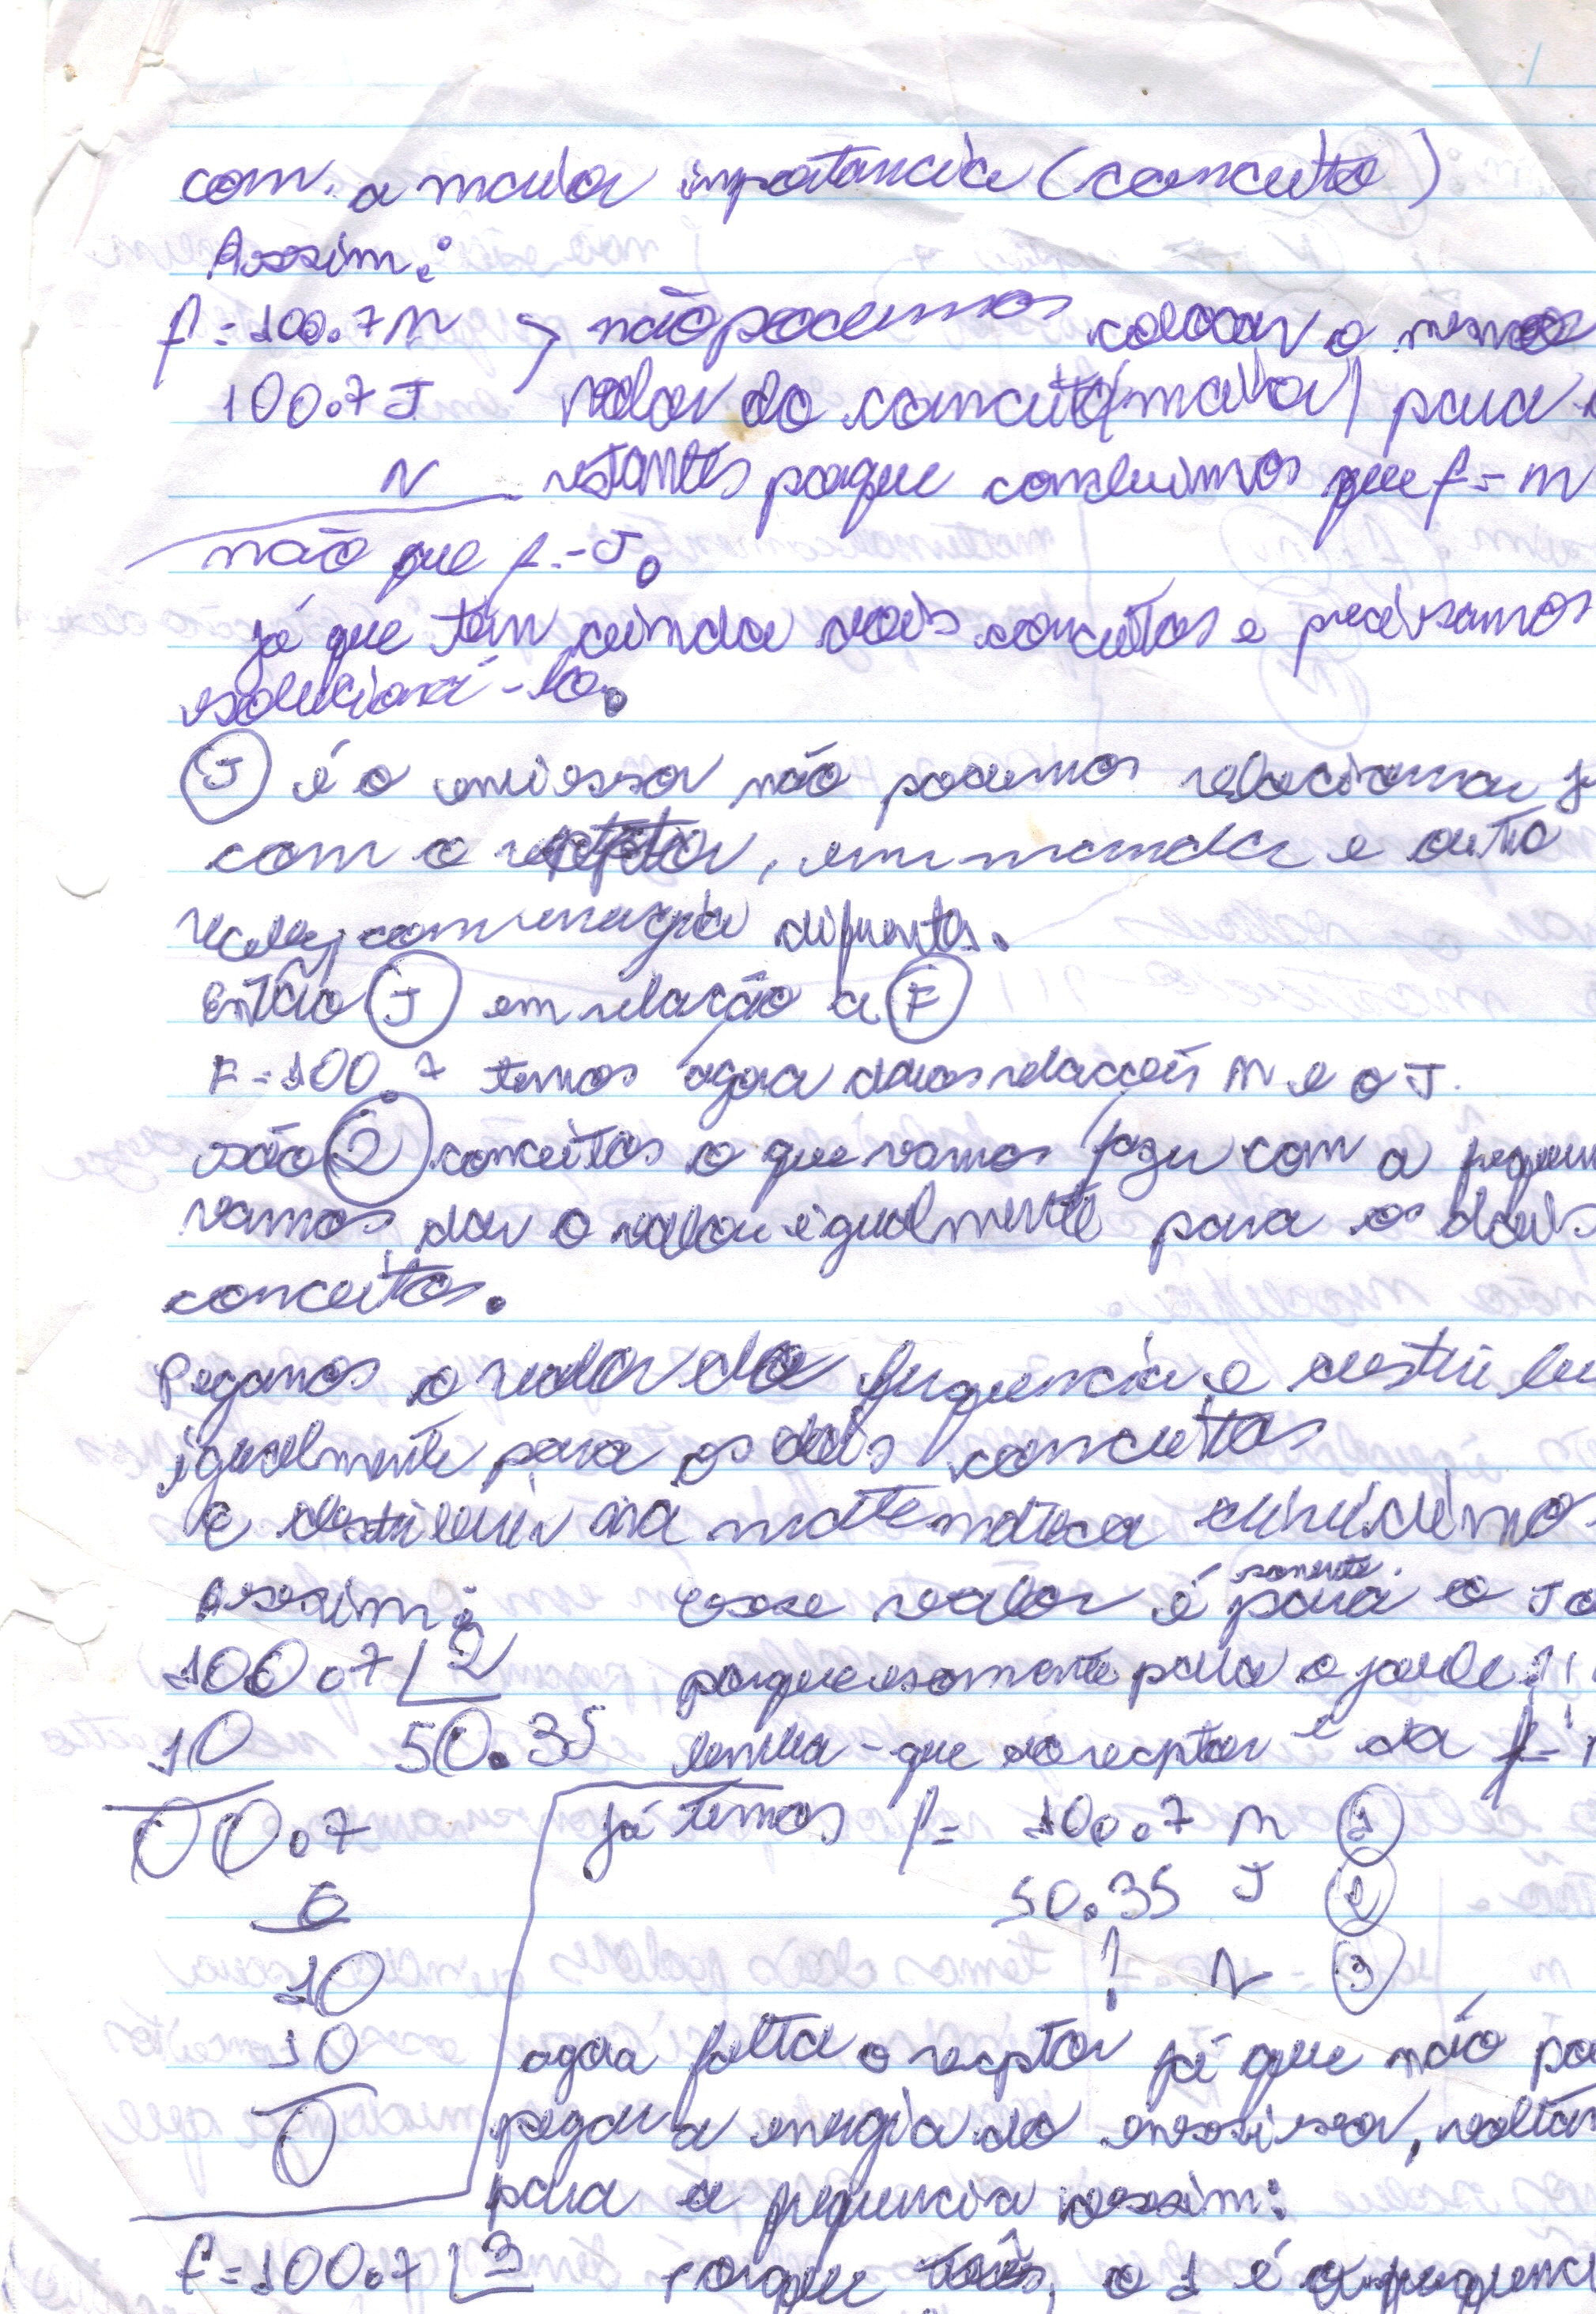 com. a maior importancia (conceito)
Assim:
f = 100.7 m > não podemos colocar o mesmo
100.7 J valor do conceito (maior) para
N restantes porque concluimos que f = m
não que f = J.
já que tem ainda dois conceitos e precisamos
solucioná-lo.
J é o emissor não podemos relacionar
com o receptor, um manda e outro
recebe, com energia diferentes.
Então J em relação a F
F = 100.7 temos agora duas relações m e o J.
são 2 conceitos o que vamos fazer com a
vamos dar o valor igualmente para os dois
conceitos.
Pegamos o valor da frequência e
igualmente para os dois conceitos
e destribuir na matematica dividimos
Assim: esse valor é somente para o
100.7 2 porque somente para o joule?
10 50.35 lembra-que do receptor é da f =
00.7 já temos f = 100.7 m 1
0 50.35 J 2
10 ? N 3
10 agora falta o receptor já que não
0 pegar a energia do emissor,
para a frequencia assim:
f = 100.7 3 porque três, o 1 é a